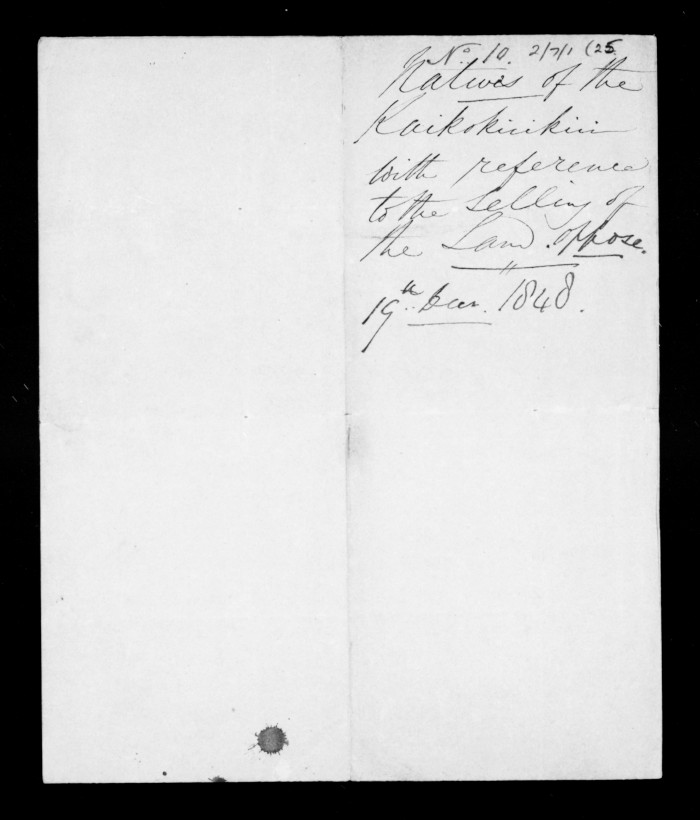 No. 10. 2/7/1 (25
Natives of the
Kaikokirikiri
with reference
to the Selling of
the Land. oppose.
19th Decr. 1848.